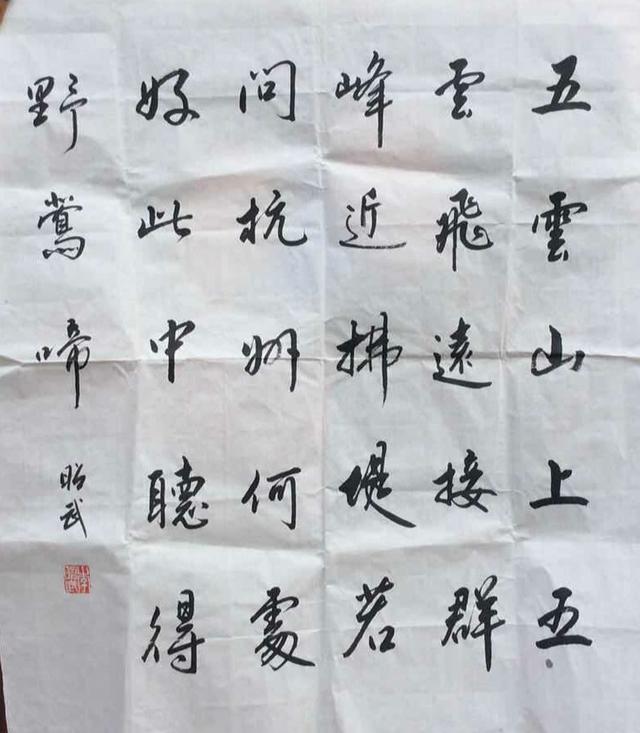 五雲山上五
雲飛遠接群
峰近拂堤若
問杭州何處
好此中聽得
野鶯啼
昭武